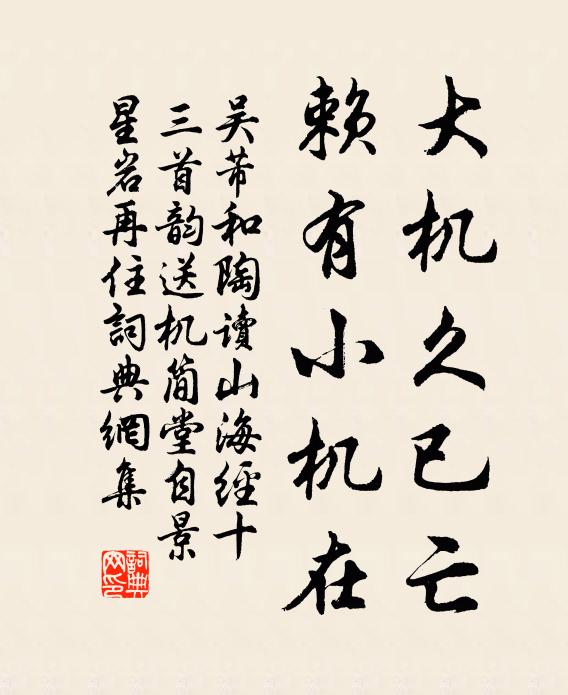 大机久已亡
赖有小机在
吴芾和陶读山海經十
三首韵送机简堂自景
星岩再住詞典網集
詞典網印